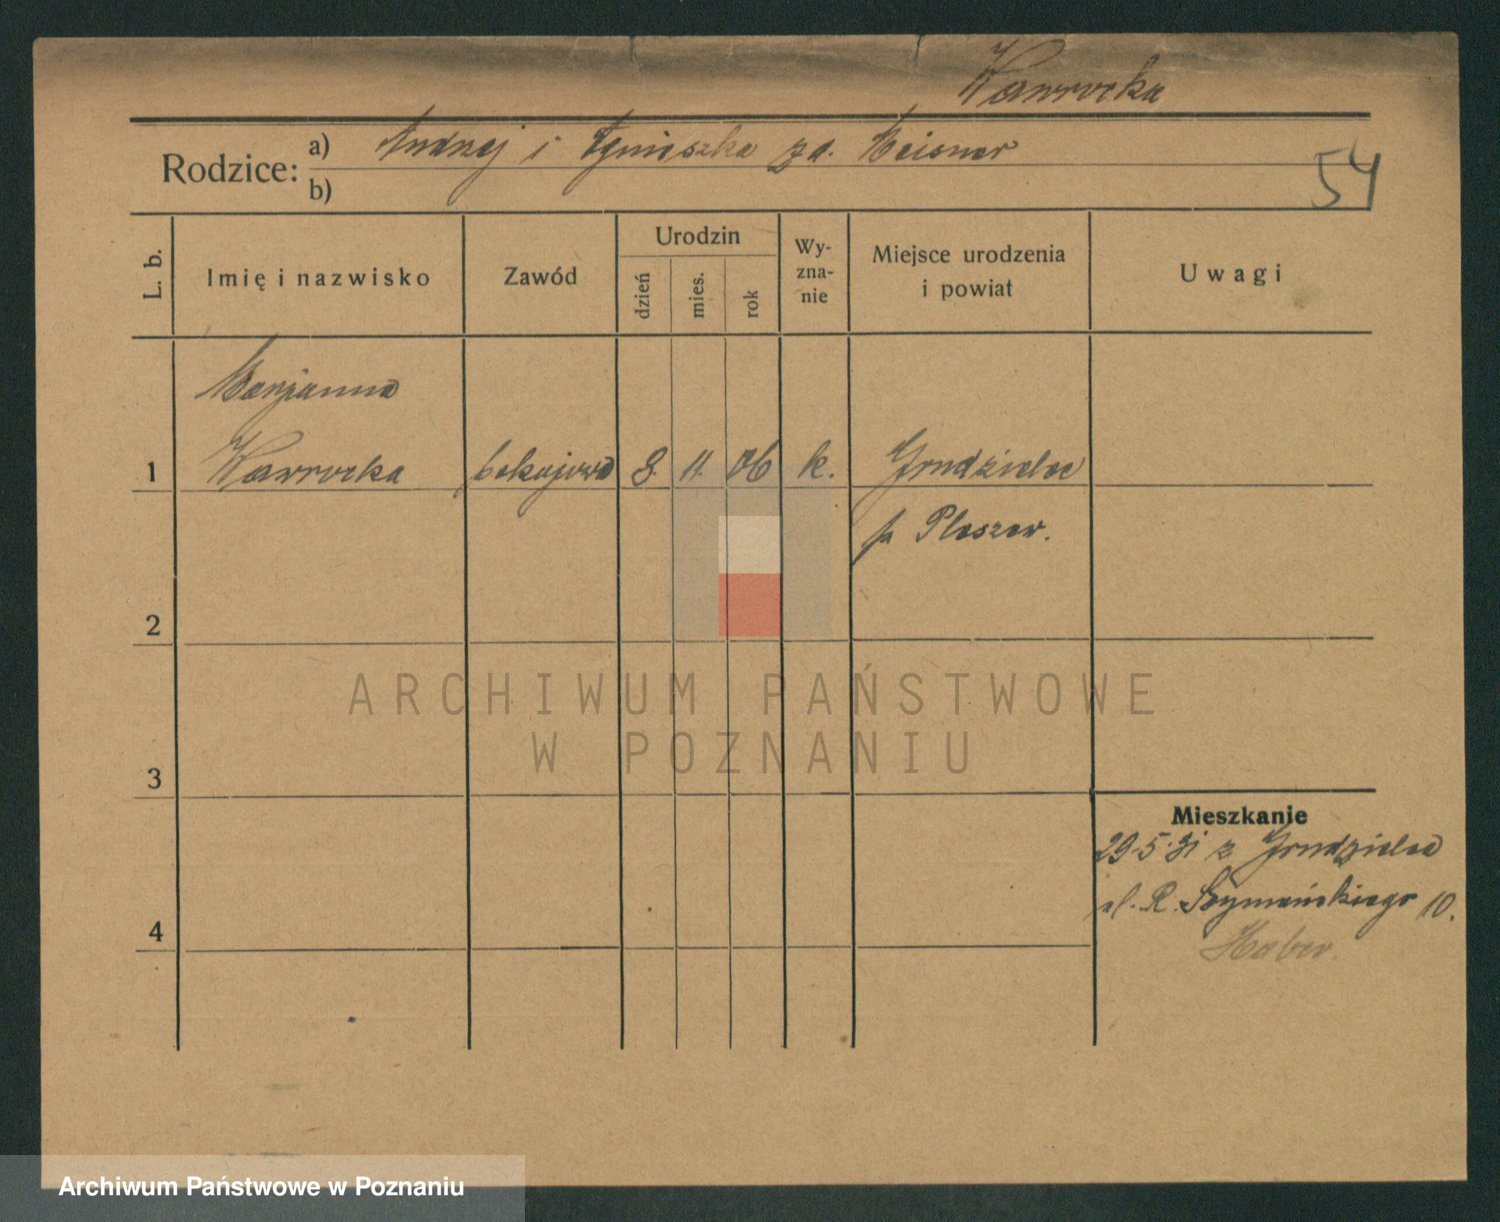 Wawrocka
Rodzice: a) Andrzej i Agnieszka zd. Meisner
b)
54
L. b.
Imię i nazwisko
Zawód
Urodzin
dzień
mies.
rok
Wy-
zna-
nie
Miejsce urodzenia
i powiat
Uwagi
Marjanna
1 Wawrocka pokojowa 8. 11. 06 k. Grudzielec
p Pleszew.
2
3
4
Mieszkanie
29.5.31 z Grudzielec
ul. R. Szymańskiego 10.
Haber.
ARCHIWUM PAŃSTWOWE
W POZNANIU
Archiwum Państwowe w Poznaniu